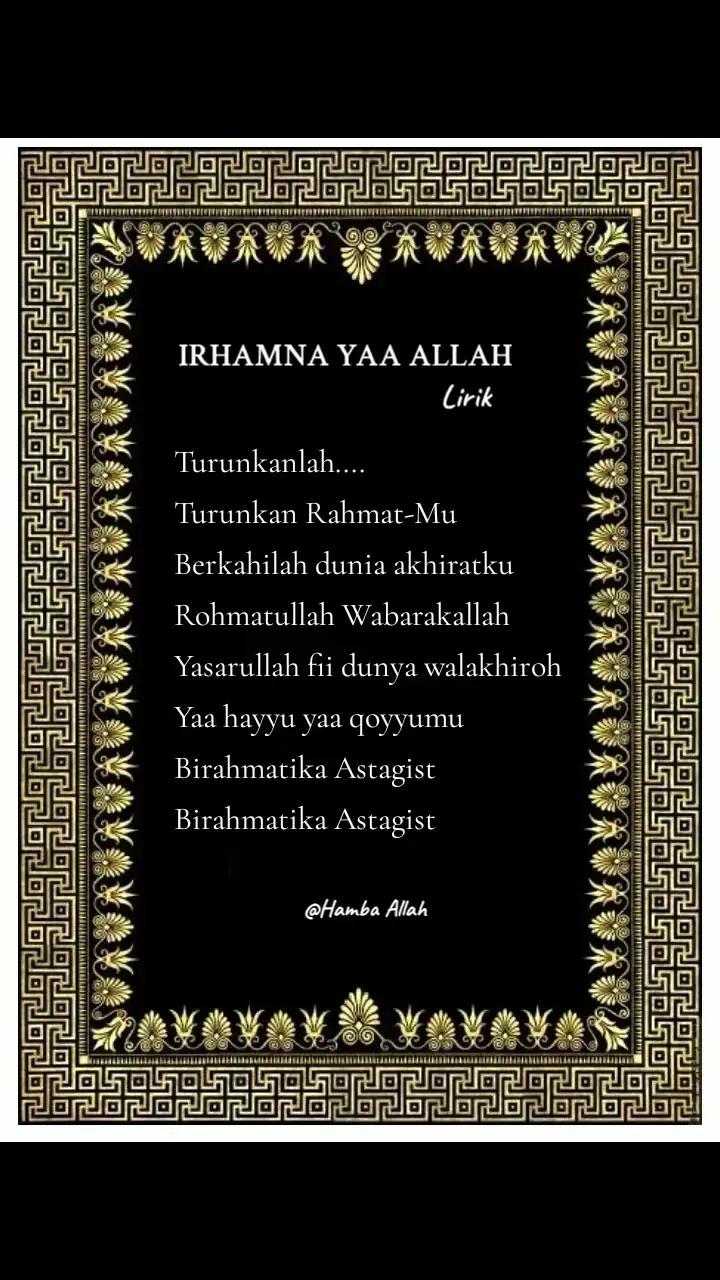 IRHAMNA YAA ALLAH
Lirik
Turunkanlah....
Turunkan Rahmat-Mu
Berkahilah dunia akhiratku
Rohmatullah Wabarakallah
Yasarullah fii dunya walakhiroh
Yaa hayyu yaa qoyyumu
Birahmatika Astagist
Birahmatika Astagist
@Hamba Allah